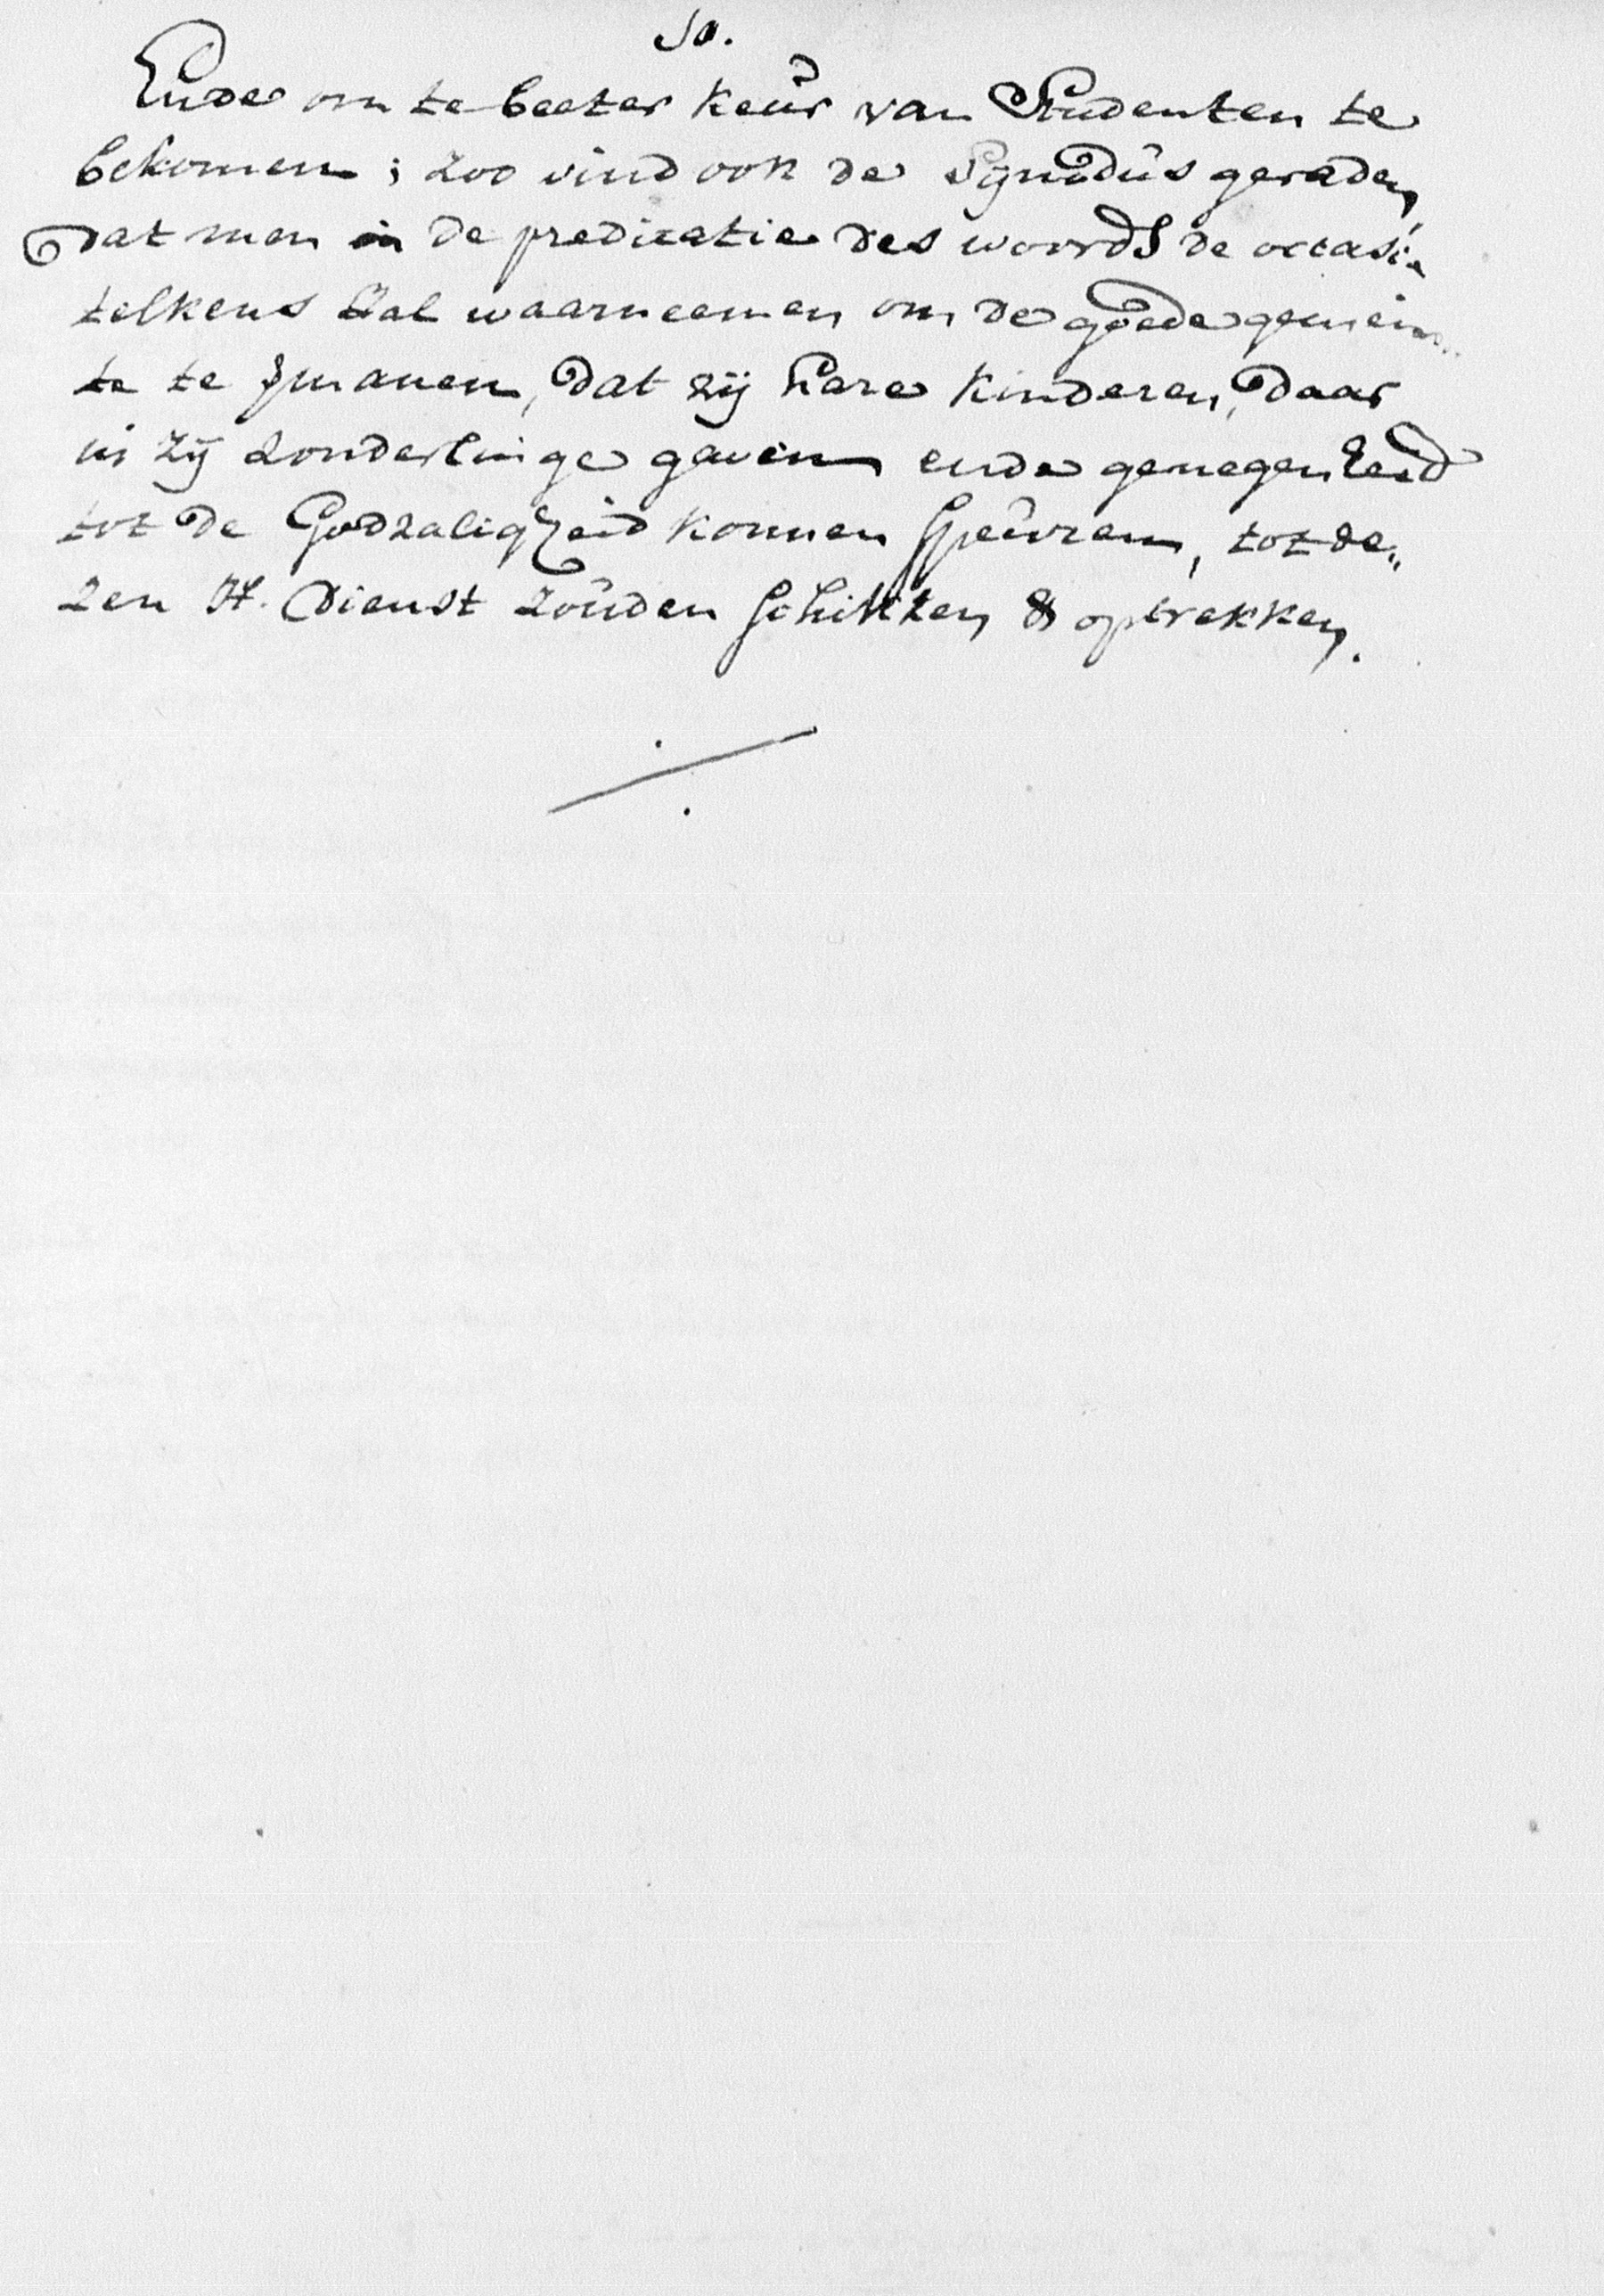 10.
Ende om te beeter keur van Studenten te
bekomen; zoo vind ook de Synodus geraden,
dat men in de predicatie des woords de occasie
telkens zal waarneemen om de goede gemein„
te te manen, dat zij hare kinderen, daar
in zij zonderlinge gaven ende genegenheid
tot de Godzaligheid konnen speuren, tot de„
zen H. Dienst zouden schikken & optrekken.